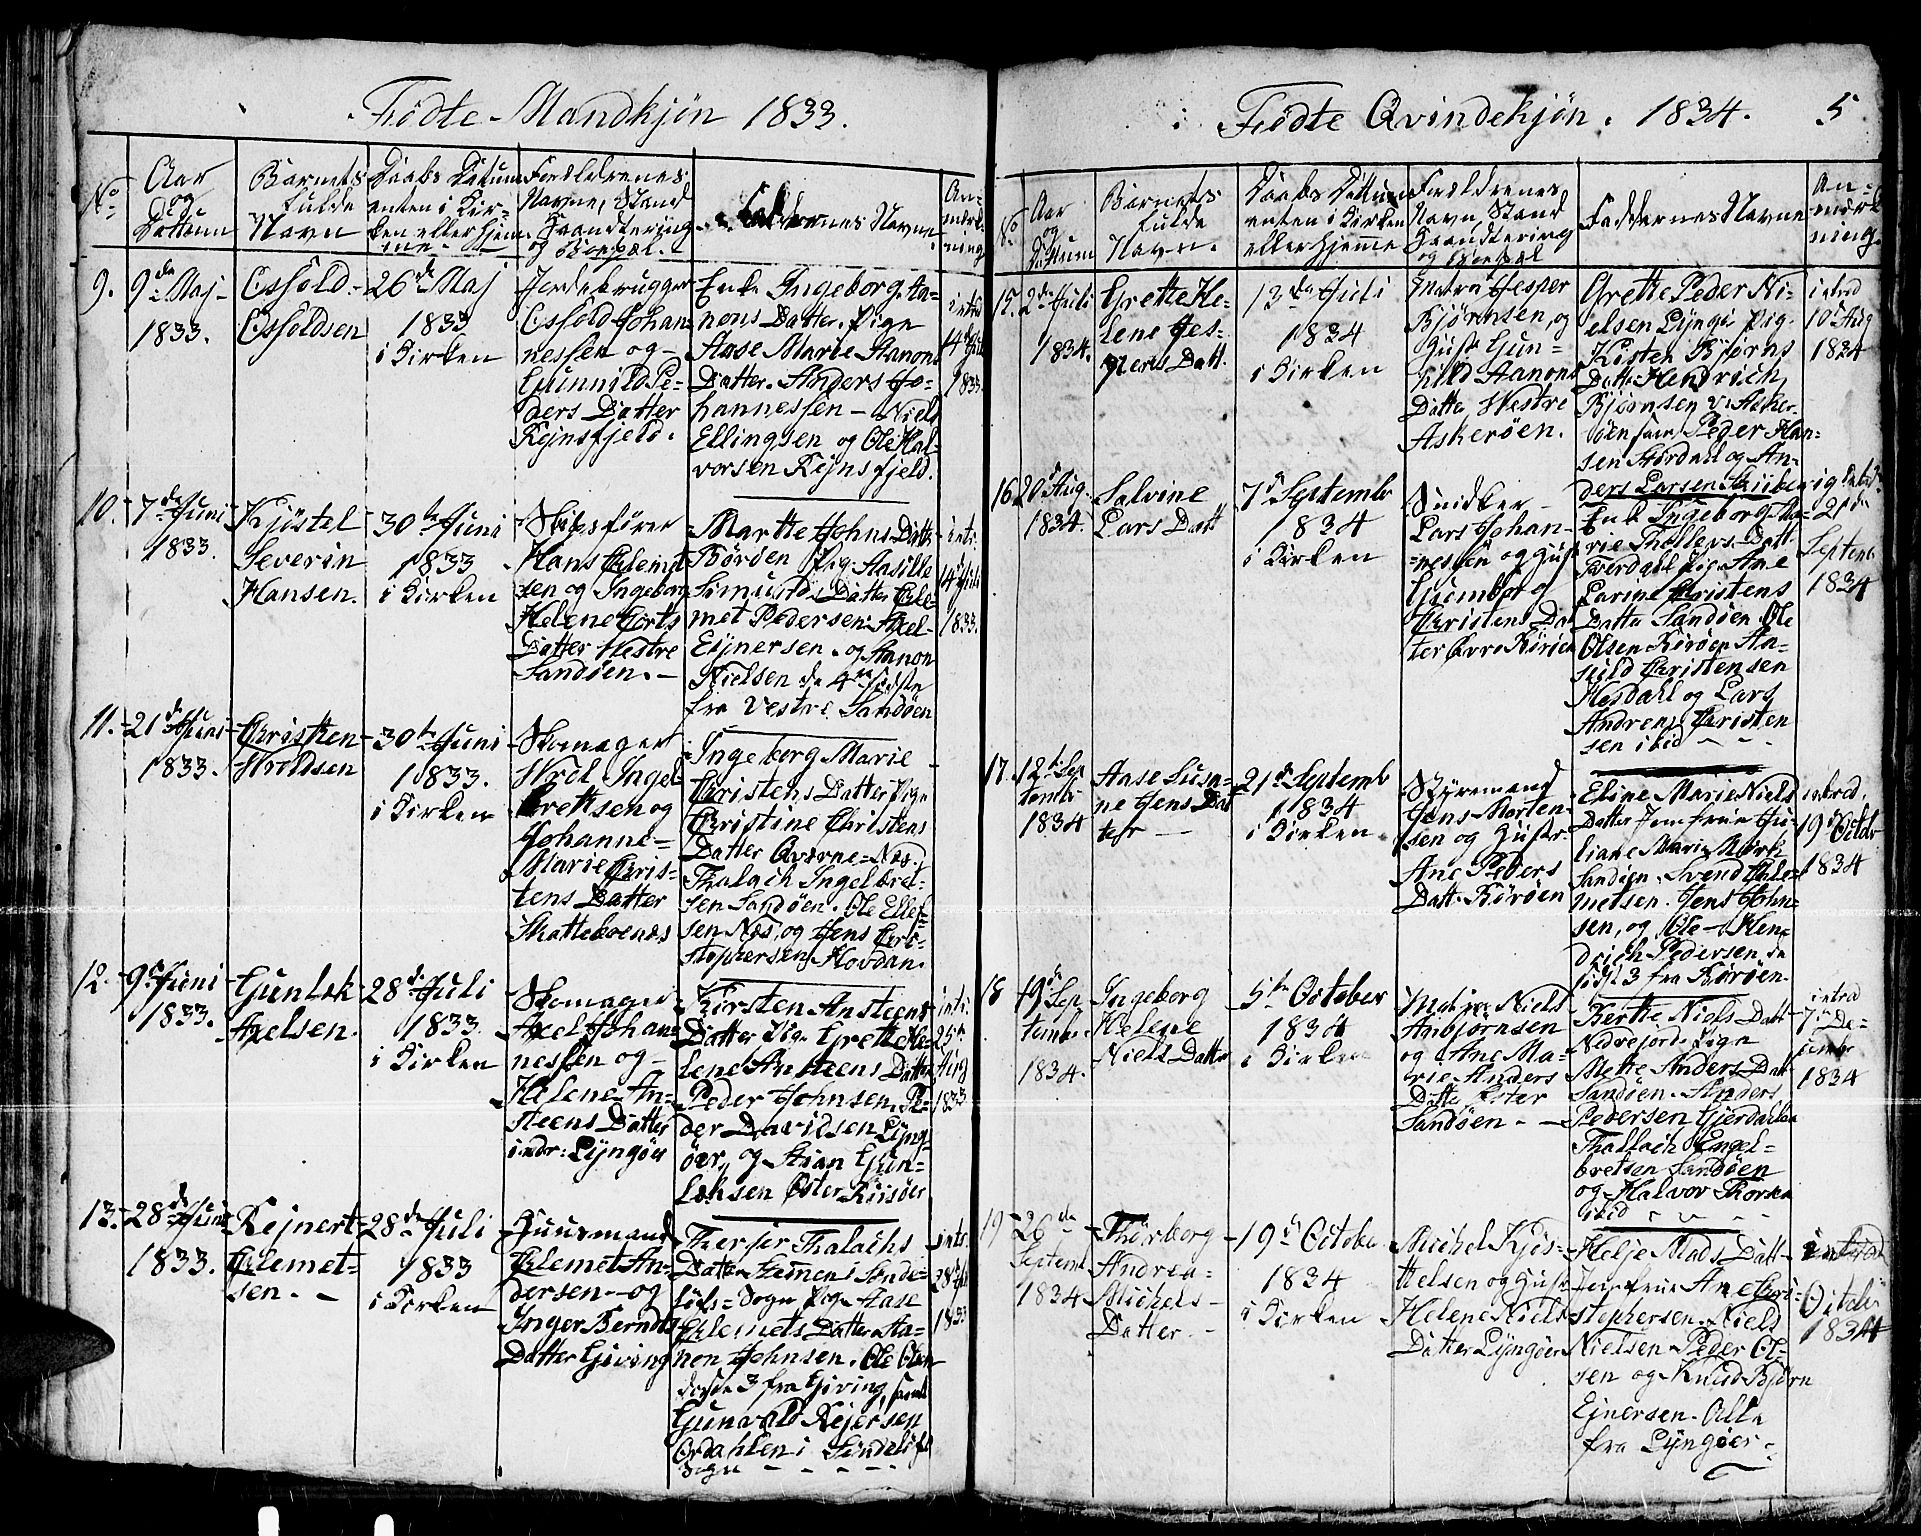 Fødte Mandkjøn 1833.
No
Aar
og
Dattum
Barnets
fulde
Navn
Daabs Datum
enten i Kir-
ken eller Hjem-
me
Forældrenes
Navne, Stand
Haandtering
og Boepæl.
Faddernes Navne.
An-
mærk-
ning
9.
9de Maj
1833.
Osfold
Osfoldsen
26de Maj
1833
i Kirken
Jordebrugger
Osfold Johan-
nessen og
Gunnild Pe-
ders Datter
Rejnsfjeld.
Enke Ingeborg Aa-
nons Datter. Pige
Aase Marie Aanons
Datter. Anders Jo-
hannessen - Niels
Ellingsen og Ole Hal-
vorsen Rejnsfjeld.
intr.
14de Juli
1833.
10.
7de Juni
1833.
Kjøstel
Severin
Hansen.
30te Juni
1833
i Kirken
Skibsfører
Hans Clemet-
sen og Ingeborg
Helene Corts
Datter Vestre
Sandøen.
Marthe Johns Datt
Børøen Pig Aasille
Somunds Datter Cle-
met Pedersen Axel
Ejnersen og Aanon
Nielsen de 4re sidste
fra Vestre Sandøen
intr.
14de Juli
1833.
11.
21de Juni
1833.
Christen
Wroldsen
30te Juni
1833.
i Kirken
Skomager
Wrol Ingel-
bretsen og
Johanne
Marie Chris-
tens Datter
Skattebrenæs
Ingeborg Marie
Christens Datter Pige
Christine Christens
Datter Qværne-Næs.
Thalach Ingelbret-
sen Sandøen. Ole Ellef-
sen Næs, og Jens Chri-
stophersen Hovdan.
12.
9de Juni
1833.
Gunlek
Axelsen.
28de Juli
1833.
i Kirken
Skomager
Axel Johan-
nessen og
Helene An-
steens Datter
indr: Lyngøer
Kirsten Ansteens
Datter Pige Grette He-
lene Ansteens Datter
Peder Johnsen, Pe-
der Davidsen Lyng-
øer, og Stian Gun-
leksen Øster Riisøer
intr:
25de
Aug
1833
13.
28de Juni
1833.
Rejnert
Clemet-
sen.
28de Juli
1833
i Kirken
Huusmand
Clemet An-
dersen og
Inger Bernts
Datter Giving
Therje Thalachs
Datter Hemmen i Sønde-
løfs Sogn Pige Aase
Clemets Datter Aa-
non Johnsen. Ole Olsen
disse 3 fra Giving, samt
Gunvald Rejersen
Ordahlen i Sindeløfs
Sogn
intr.
1833
Fødte Qvindekjøn. 1834.
5
No
Aar
og
Dattum
Barnets
fulde
Navn.
Daabs Dattum
enten i Kirken
eller Hjemme
Forældrenes
Navn, Stand
Haandtering
og Boepæl
Faddernes Navne
An-
mærk
ning.
15.
2de Juli
1834.
Grette He-
lene Jes-
pers Datt.
13de Juli
1834
i Kirken
Matro Jesper
Bjørnsen, og
Hustr Gun-
hild Aanons
Datte Vestre
Askerøen.
Grette Peder Ni-
elsen Lyngø Pig.
Kisten Bjørns
Datte Hendrich
Bjørnsen V. Asker-
øen samt Peder Han-
sen Stordahl og An-
ders Larsen
introd
10de Aug
1834
16.
20de Aug.
1834.
Salvine
Lars Datt
7de Septembr
1834
i Kirken
Snidker
Lars Johan-
nessen og Hust
Gunborg
Christens Dat-
ter
Enk Ingeborg Ma-
rie Thollevs Datt
Tverdahl Pig Ane
Larine Christens
Datte Sandøen Ole
Olsen Kørøen Aa-
suld Christensen
Hesdahl og Lars
Andreas Christen
sen ibid
21de
Septemb
1834
17.
12te Sep
tembr
1834
Aase Susa-
ne Jens Dat
ter
21de Septemb
1834
i Kirken
Styrmand
Jens Morten-
sen og Hustr
Ane Peders
Datt. Kørøen
Eline Marie Niels
Datter Jomfrue Ju-
liane Marie Mørk
Sandøen. Svend Cle-
metsen. Jens John-
sen, og Ole Hen-
drich Pedersen de
sidst 3 fra Kørøen.
introd.
19de Octbr
1834
18
19de Sep
tembr
1834.
Ingeborg
Helene
Niels Datter
5te October
1834
i Kirken
Niels
Anbjørnsen
og Ane Ma-
rie Anders
Datte Øster
Sandøen.
Berthe Niels Datt
Nedrejord. Pige
Mette Anders Datt
Sandøen. Anders
Pedersen Gjerdalen
Thallach Engel-
bretsen Sandøen
og Halvor Thorsen
ibid
introd
7de De-
cembr
1834
19
26de
Septemb
1834
Thorborg
Andrea
Michels
Datter.
19de Octobe
1834
i Kirken
Michel Kjøs-
telsen og Hust
Helene Niels
Datter Lyngøer
Helje Mads Datt
Jomfrue Ane Chri-
stophersen. Niels
Nielsen Peder Ol-
sen og Knud Bjørn
Ejnersen. Alle
fra Lyngøer.
introd
Octobr
1834